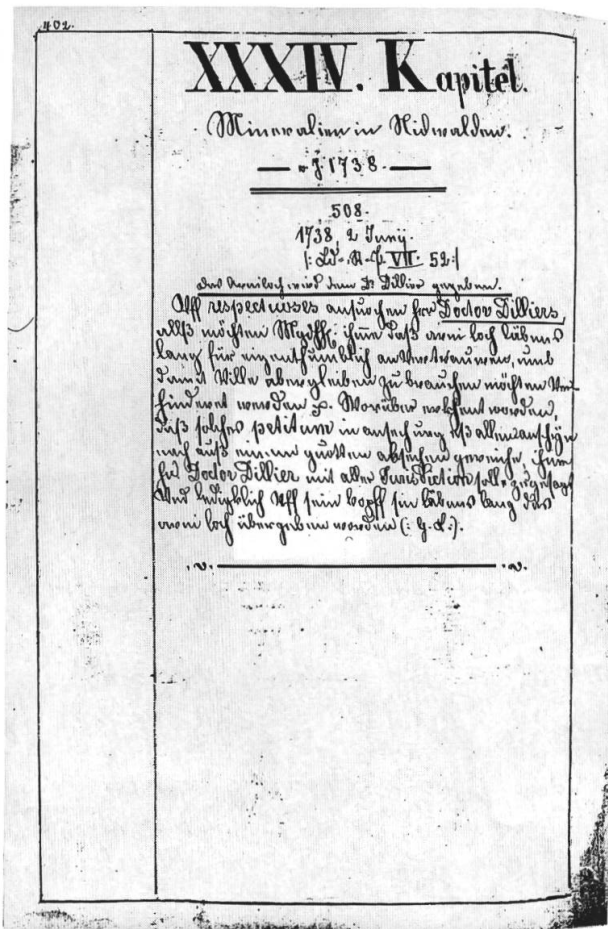 402.
XXXIV. Kapitel.
Mineralien in Nidwalden.
J. 1738.
508.
1738, 2 Junÿ.
VII. 52:/
das Arniloch wird dem Dr. Dillier gegeben.
Uff respectuoses ansuchen Hrn Doctor Dilliers,
allß möchten ihme daß arni loch läbens
lang für eigenthümblich anvertrauwen, und
damit Ville abergleiben zu brauchen möchten Ver
hinderet werden Worüber erkhent worden,
daß solches petitum in ansechung eß allem anschÿn
nach auß einem guotten absechen gereiche, ihme
Hr Doctor Dillier mit aller Jurisdiction solle zuogesagt
Und lediglich Uff sein kopff sin läbens lang das
arni loch übergeben worden (: G. L:).